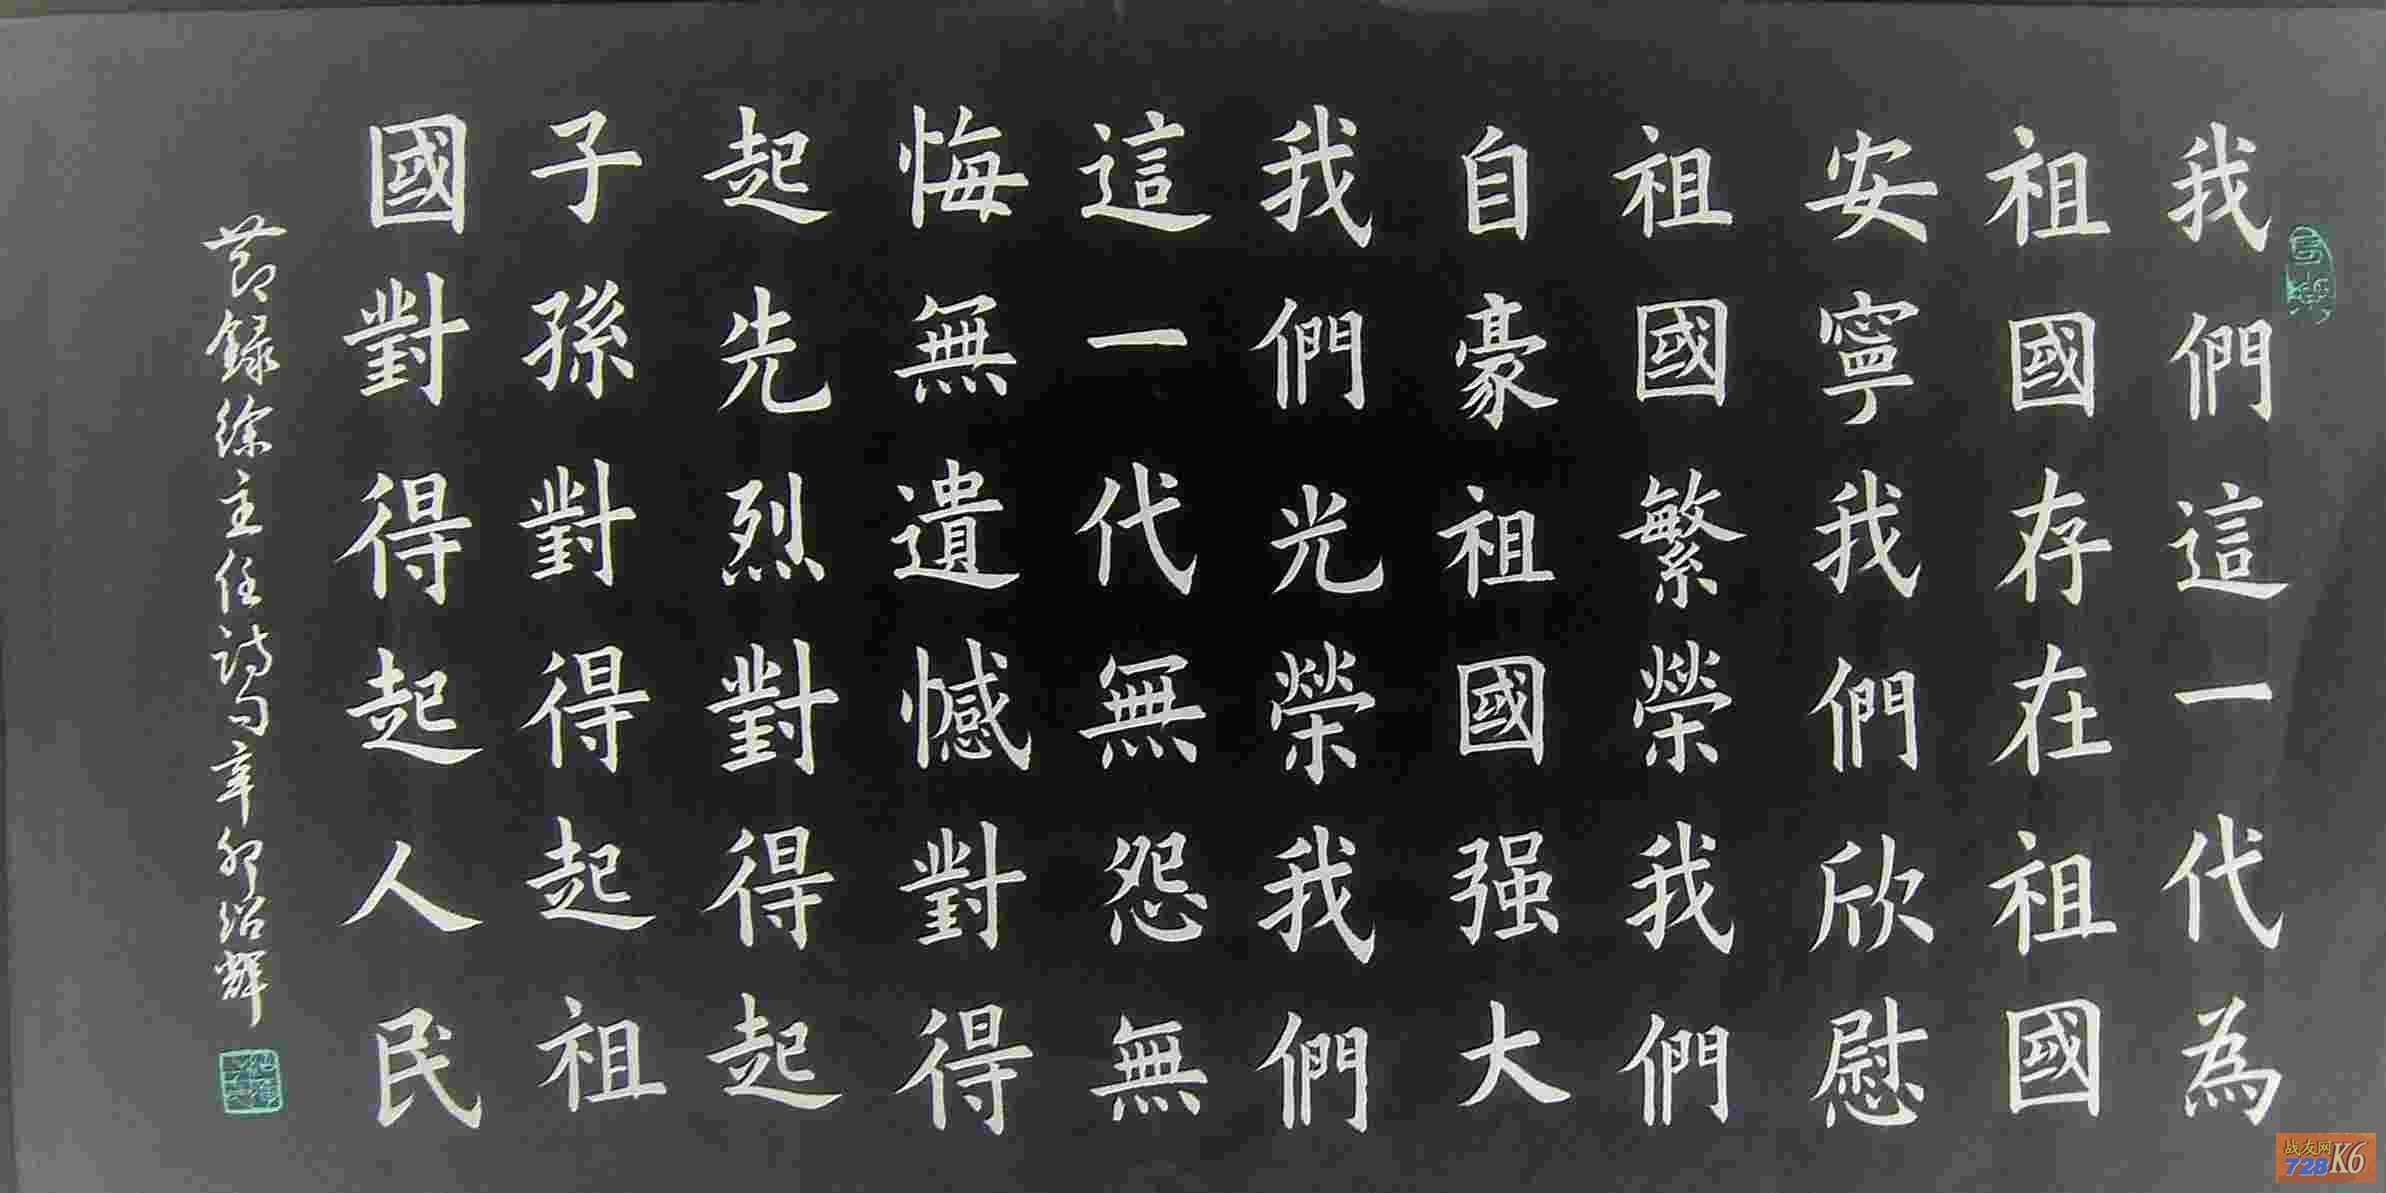 我們這一代為
祖國存在祖國
安寧我們欣慰
祖國繁榮我們
自豪祖國强大
我們光榮我們
這一代無怨無
悔無遺憾對得
起先烈對得起
子孫對得起祖
國對得起人民
節錄徐主任詩句辛卯紹輝
战友网
728K6